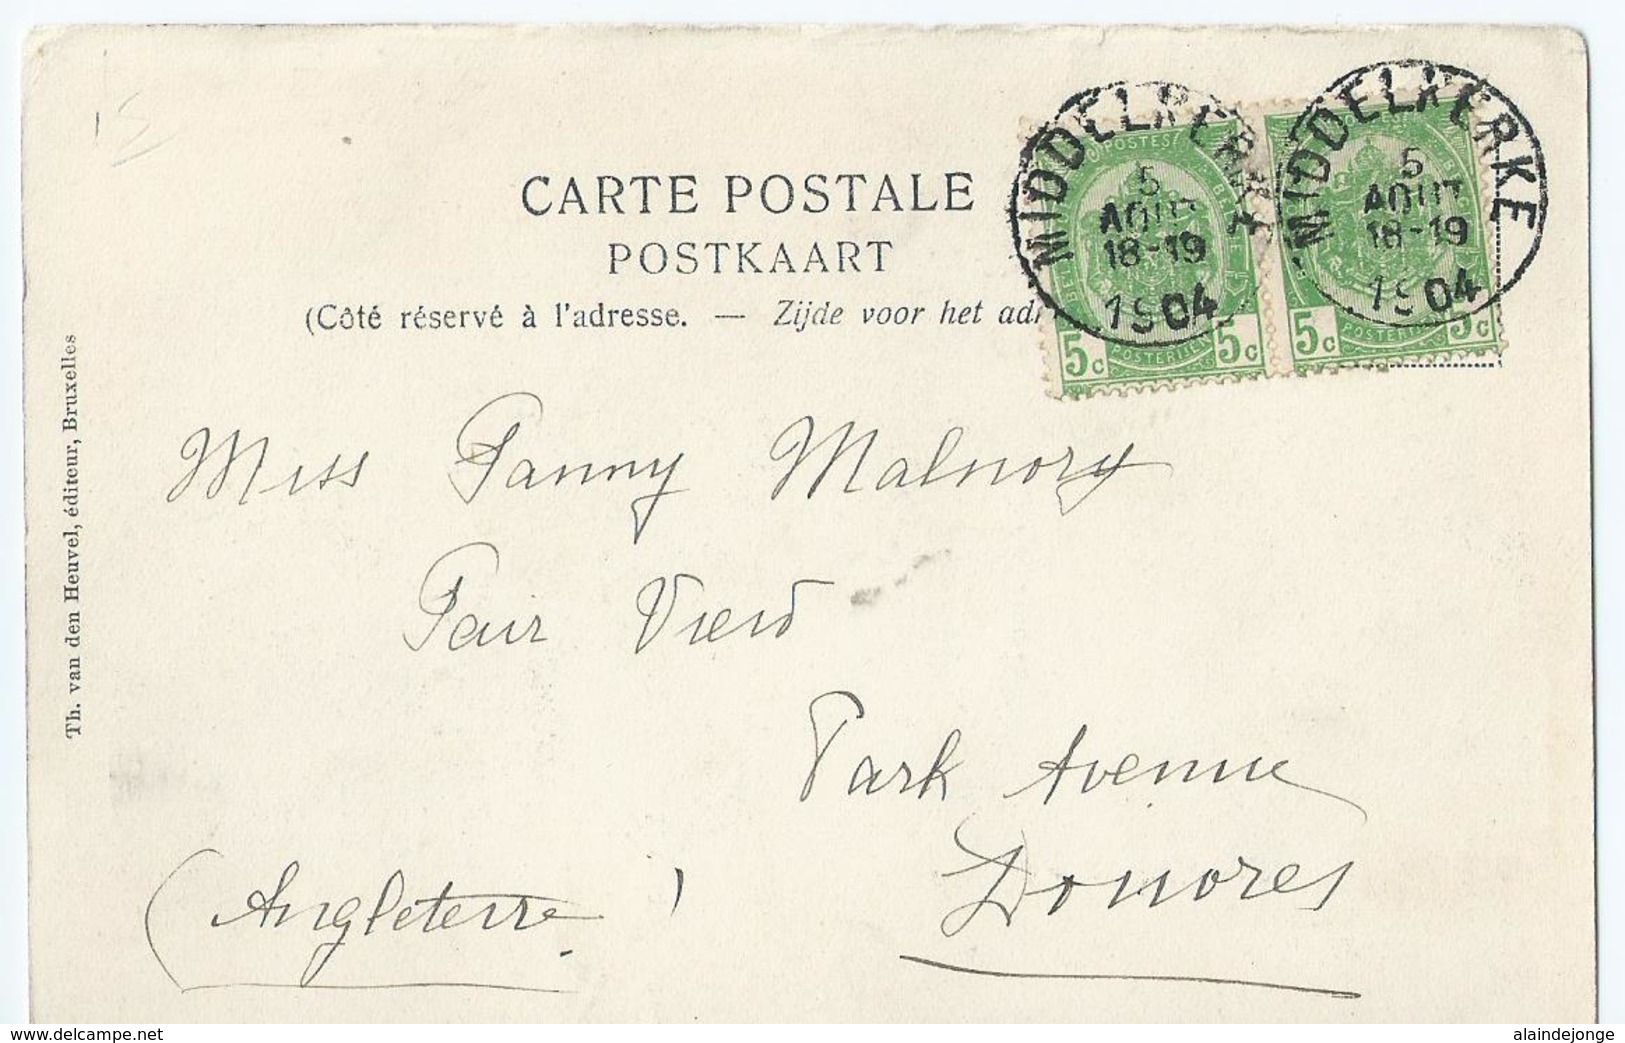 15
CARTE POSTALE
POSTKAART
(Côté réservé à l'adresse. — Zijde voor het adr
MIDDELKERKE
5
AOUT
18-19
1904
POSTES
5c 5c
MIDDELKERKE
5
AOUT
18-19
1904
5c 5c
Th. van den Heuvel, éditeur, Bruxelles
Miss Fanny Malnory
Fair View
Park Avenue
(Angleterre)
www.delcampe.net
alaindejonge